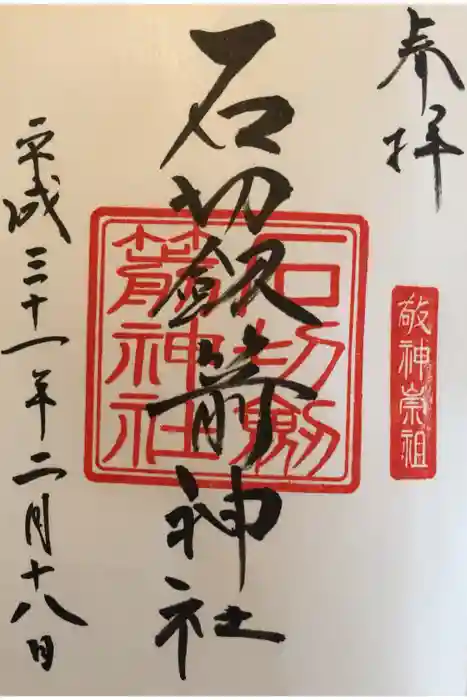 奉拝
敬神崇祖
石切劔箭神社
石切劔
箭神社
平成三十一年二月十八日